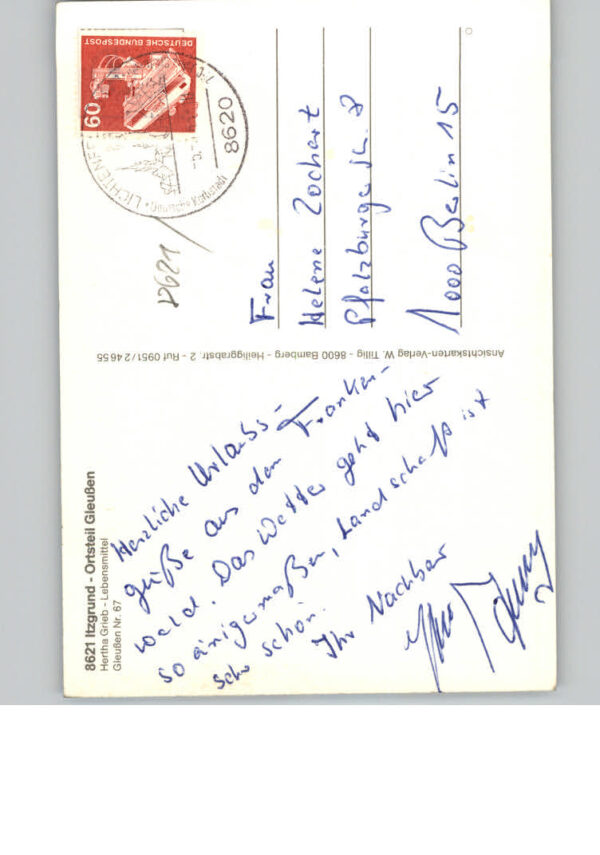 8621 Itzgrund - Ortsteil Gleußen
Hertha Grieb - Lebensmittel
Gleußen Nr. 67
Herzliche Urlaubs-
grüße aus dem Franken-
wald. Das Wetter geht hier
so einigermaßen, Landschaft ist
sehr schön.
Ihr Nachbar
Ansichtskarten-Verlag W. Tillig - 8600 Bamberg - Heiliggrabstr. 2 - Ruf 0951/24655
DEUTSCHE BUNDESPOST
60
8620
D621
Frau
Helene Zochert
Pfalzburger Str. 8
1000 Berlin 15